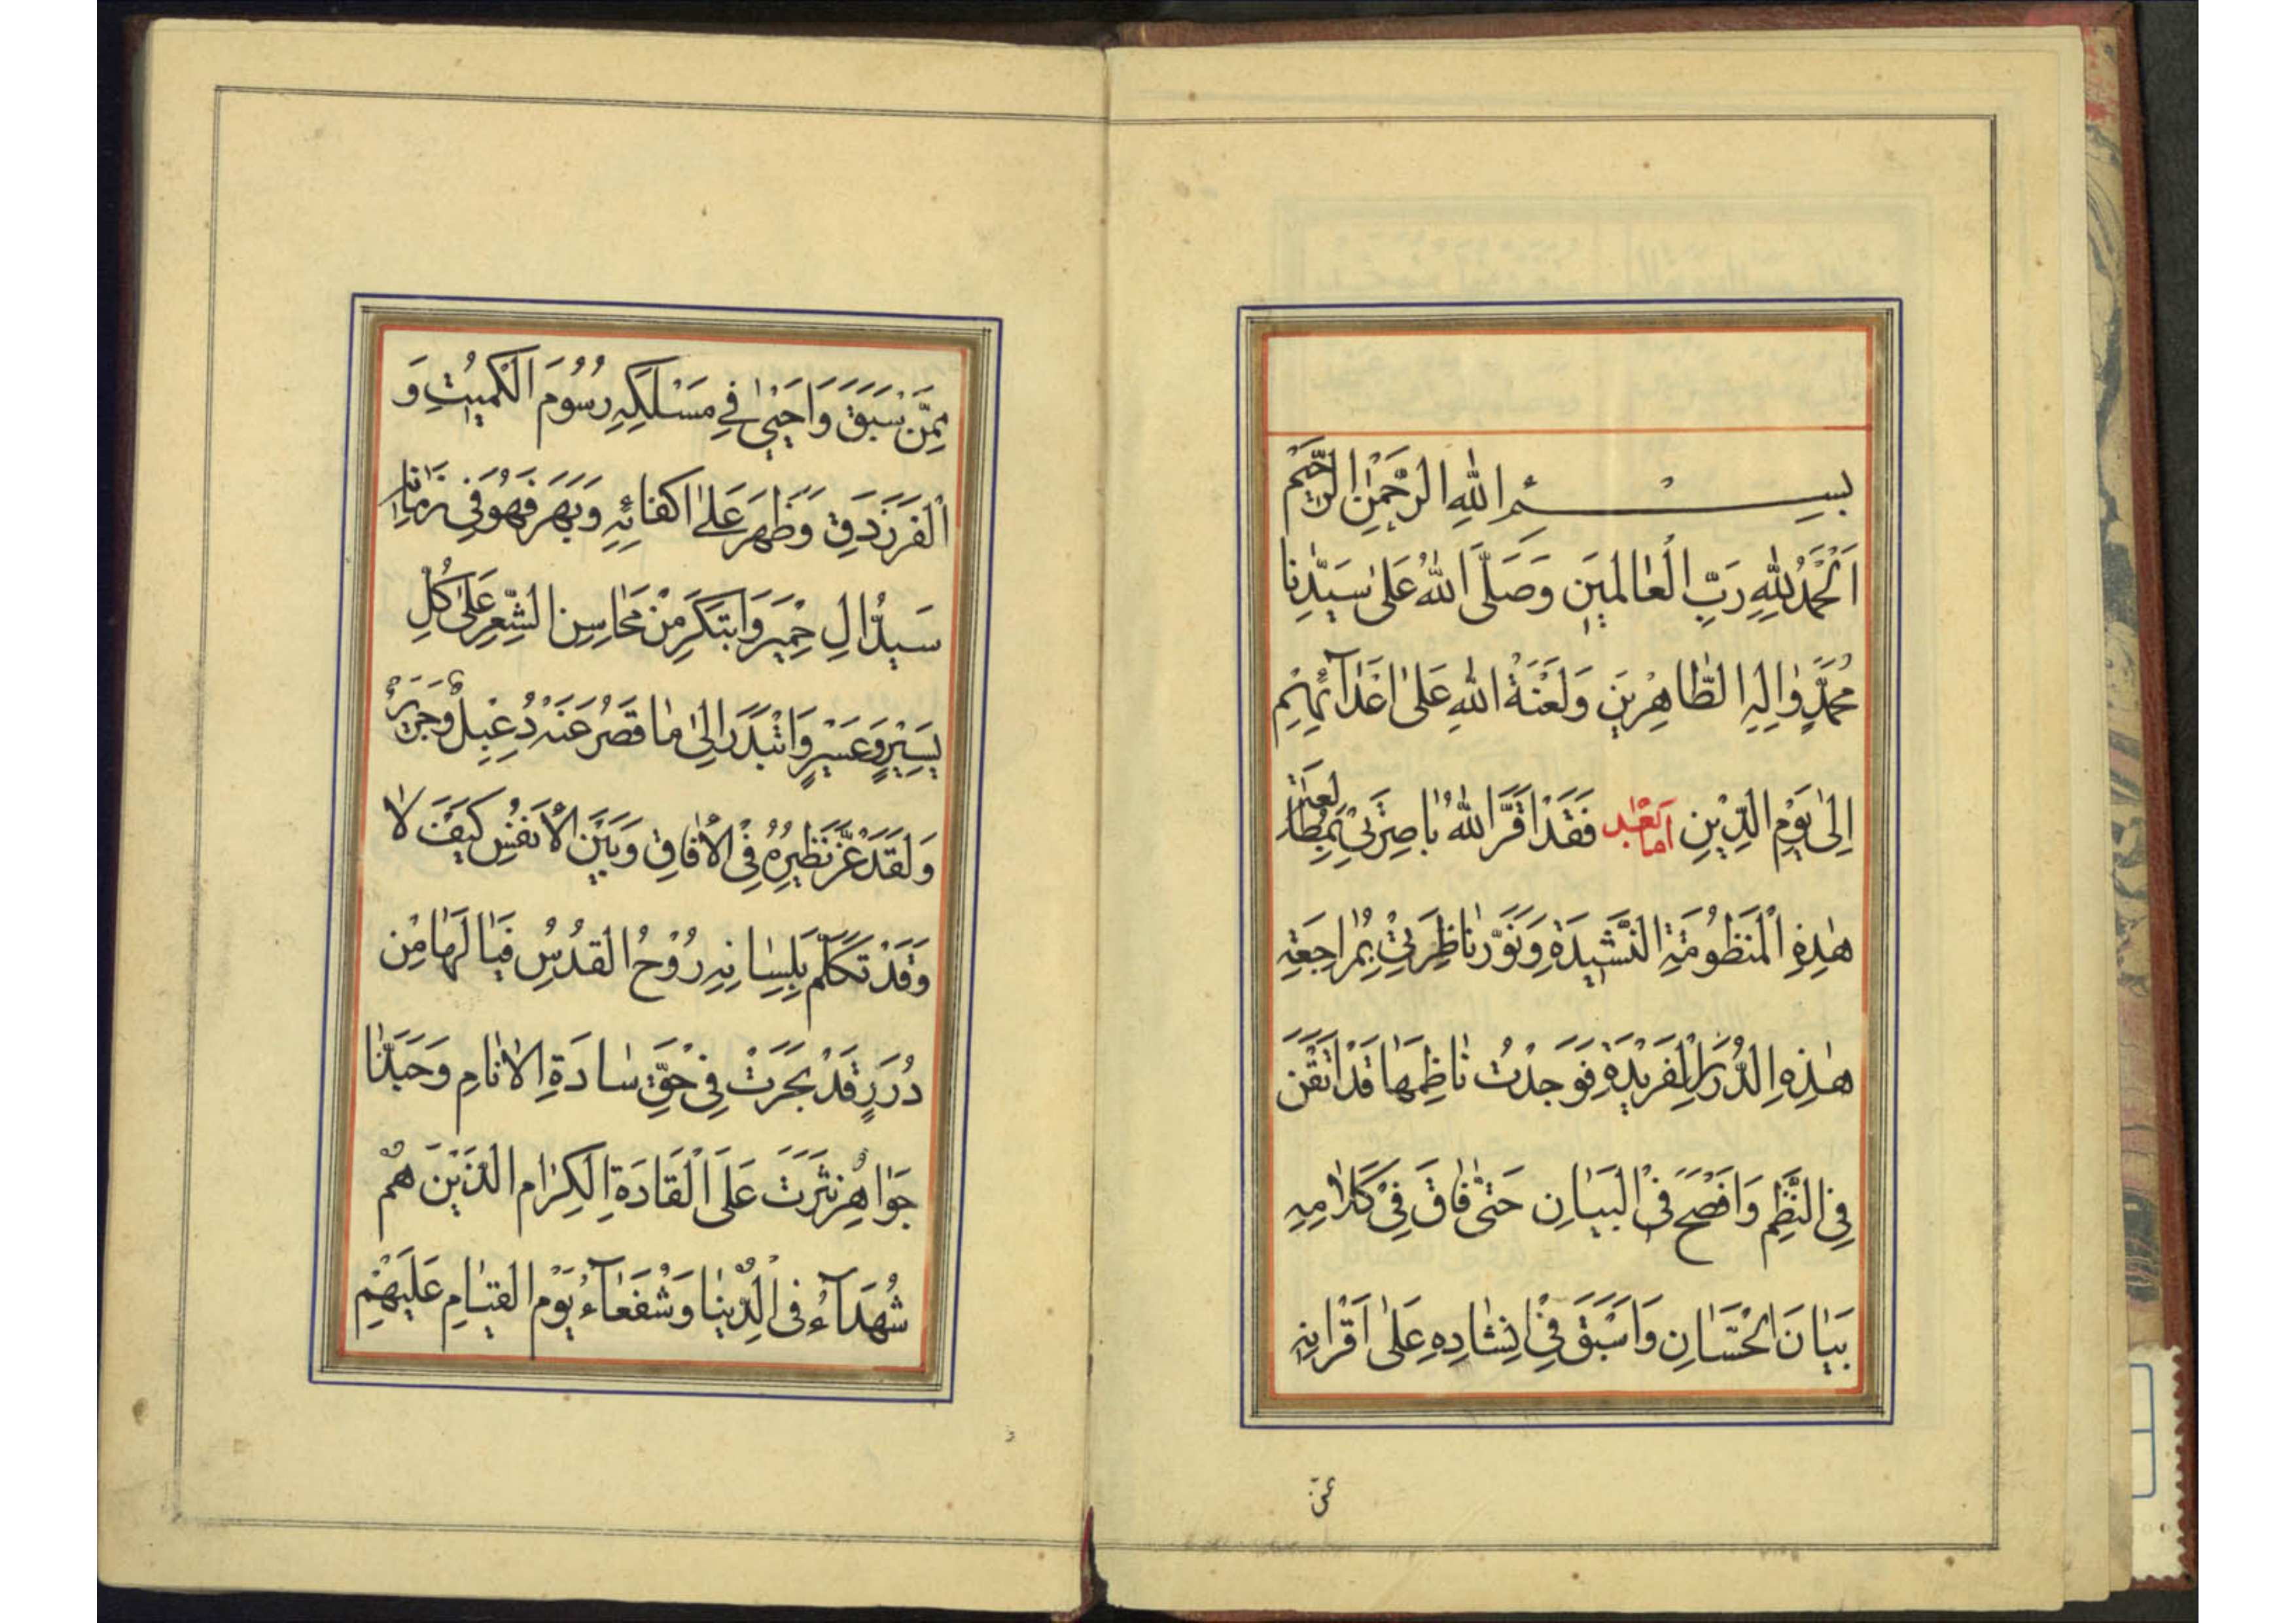 بِسْمِ اللهِ الرَّحْمٰنِ الرَّحِيْمِ
اَلْحَمْدُ لِلّٰهِ رَبِّ الْعٰالَمِيْنَ وَصَلَّى اللهُ عَلىٰ سَيِّدِنا
مُحَمَّدٍ وٰالِهِ الطّٰاهِرِيْنَ وَلَعْنَةُ اللهِ عَلىٰ اَعْدٰآئِهِمْ
اِلىٰ يَوْمِ الدِّيْنِ اَمّٰا بَعْد فَقَدْ اَقَرَّ اللهُ بٰاصِرَتِيْ بِمُطٰالَعَةِ
هٰذِهِ الْمَنْظُومَةِ النَّشِيْدَةِ وَنَوَّرَ نٰاظِرَتِيْ بِمُرٰاجَعَةِ
هٰذِهِ الدُّرَرِ الْفَرِيْدَةِ فَوَجَدْتُ نٰاظِمَهٰا قَدْ اَتْقَنَ
فِي النَّظْمِ وَاَفْصَحَ فِي الْبَيٰانِ حَتّٰى فٰاقَ فِيْ كَلٰامِهِ
بَيٰانَ الْحَسّٰانِ وَاَسْبَقَ فِيْ اِنْشٰادِهِ عَلىٰ اَقْرٰانِهِ
مِمَّنْ سَبَقَ وَاَحْيىٰ فِي مَسْلَكِهِ رُسُوُمَ الْكُمَيْتِ وَ
الْفَرَزْدَقِ وَظَهَرَ عَلىٰ اَكْفٰائِهِ وَبَهَرَ فَهُوَ فِي زَمٰانِهِ
سَيِّدُ اٰلِ حِمْيَرَ وَابْتَكَرَ مِنْ مَحٰاسِنِ الشِّعْرِ عَلىٰ كُلِّ
يَسِيْرٍ وَعَسِيْرٍ وَابْتَدَرَ اِلىٰ مٰا قَصُرَ عَنْهُ دِعْبِلٌ وَجَرِيْرٌ
وَلَقَدْ عَزَّ نَظِيْرُهُ فِي الْاٰفٰاقِ وَبَيْنَ الْاَنْفُسِ كَيْفَ لٰا
وَقَدْ تَكَلَّمَ بِلِسٰانِهِ رُوْحُ الْقُدُسِ فَيٰا لَهٰا مِنْ
دُرَرٍ قَدْ بَحَرَتْ فِي حَقِّ سٰادَةِ الْاَنٰامِ وَحَبَّذٰا
جَوٰاهِرُ نُثِرَتْ عَلَى الْقٰادَةِ الْكِرٰامِ الَّذِيْنَ هُمْ
شُهَدٰآءُ فِي الدُّنْيٰا وَشُفَعٰآءُ يَوْمِ الْقِيٰامِ عَلَيْهِمْ